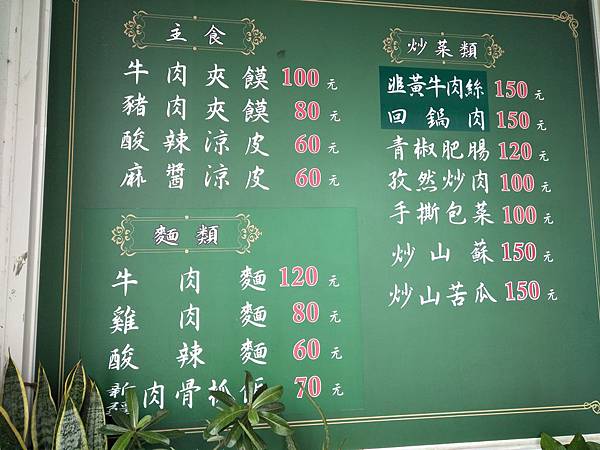 主食
牛肉夾饃 100元
豬肉夾饃 80元
酸辣涼皮 60元
麻醬涼皮 60元
麵類
牛肉麵 120元
雞肉麵 80元
酸辣麵 60元
肉骨 70元
炒菜類
韭黃牛肉絲 150元
回鍋肉 150元
青椒肥腸 120元
孜然炒肉 100元
手撕包菜 100元
炒山蘇 150元
炒山苦瓜 150元